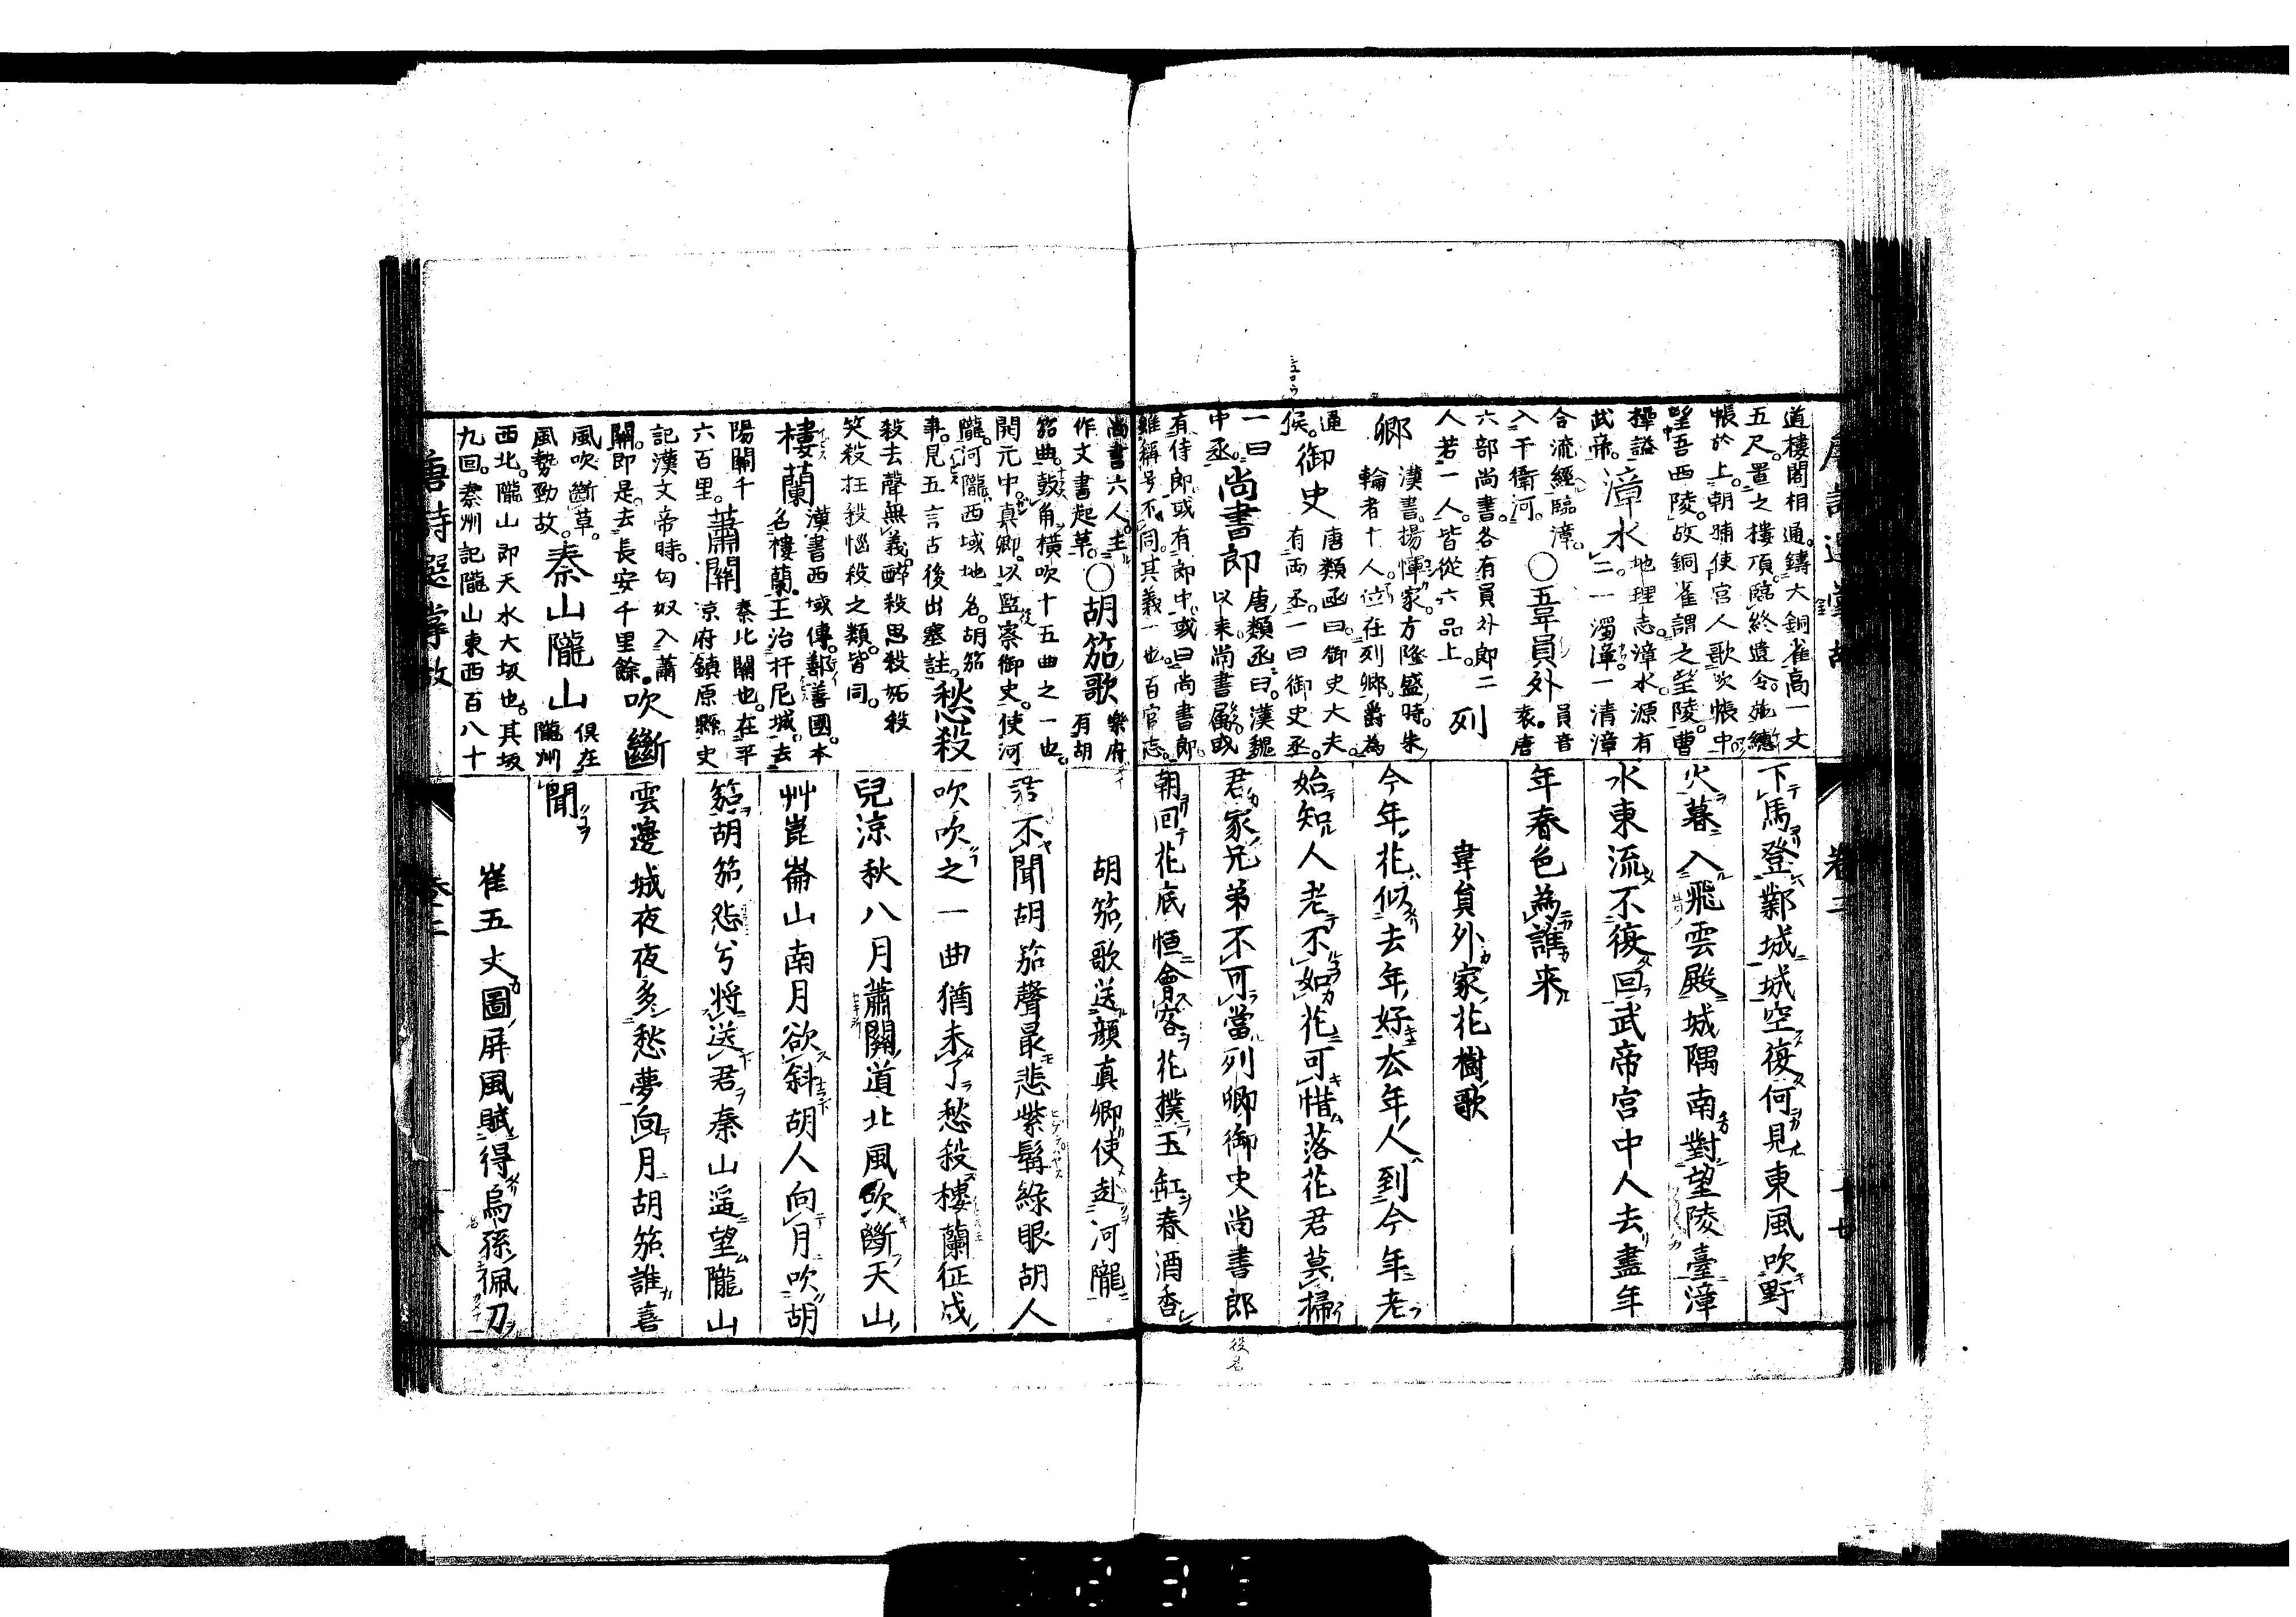 道樓閣相通鑄大銅雀高一丈
五尺置之樓頂臨終遺令施繐
帳於上朝晡使宮人歌吹帳中
望吾西陵故銅雀謂之望陵曹
操諡
武帝。漳水 地理志漳水源有
二一濁漳一清漳
合流經臨漳。
入于衛河。○韋員外 員音
袁唐
六部尚書各有員外郎二
人若一人皆從六品上。列
卿 漢書楊惲家方隆盛時朱
輪者十人位在列卿爵為
通
侯。御史 唐類函曰御史大夫
有両丞一曰御史丞
一曰
中丞。尚書郎 唐類函曰漢魏
以来尚書屬或
有侍郎或有郎中或曰尚書郎
雖稱号不同其義一也百官志
下馬登鄴城城空復何見東風吹野
火暮入飛雲殿城隅南對望陵臺漳
水東流不復回武帝宮中人去盡年
年春色為誰来
韋員外家花樹歌
今年花似去年好去年人到今年老
始知人老不如花可惜落花君莫掃
君家兄弟不可當列卿御史尚書郎
朝回花底恒會客花撲玉缸春酒香
尚書六人主
作文書起草。○胡笳歌 樂府
有胡
笳曲鼓角橫吹十五曲之一也
開元中真卿以監察御史使河
隴河隴西域地名胡笳
事見五言古後出塞註。愁殺
殺去聲無義酔殺思殺妬殺
笑殺狂殺惱殺之類皆同。
樓蘭 漢書西域傳鄯善國本
名樓蘭王治扜尼城去
陽關千
六百里。蕭關 秦北關也在平
凉府鎮原縣史
記漢文帝時匈奴入蕭
關即是去長安千里餘。吹斷
風吹斷草
風勢勁故。秦山隴山 俱在
隴州
西北隴山即天水大坂也其坂
九回秦州記隴山東西百八十
胡笳歌送顔真卿使赴河隴
君不聞胡笳聲最悲紫髯綠眼胡人
吹吹之一曲猶未了愁殺樓蘭征戍
兒涼秋八月蕭關道北風吹斷天山
艸崑崙山南月欲斜胡人向月吹胡
笳胡笳怨兮將送君秦山遥望隴山
雲邊城夜夜多愁夢向月胡笳誰喜
聞
崔五丈圖屏風賦得烏孫佩刀
唐詩選掌故